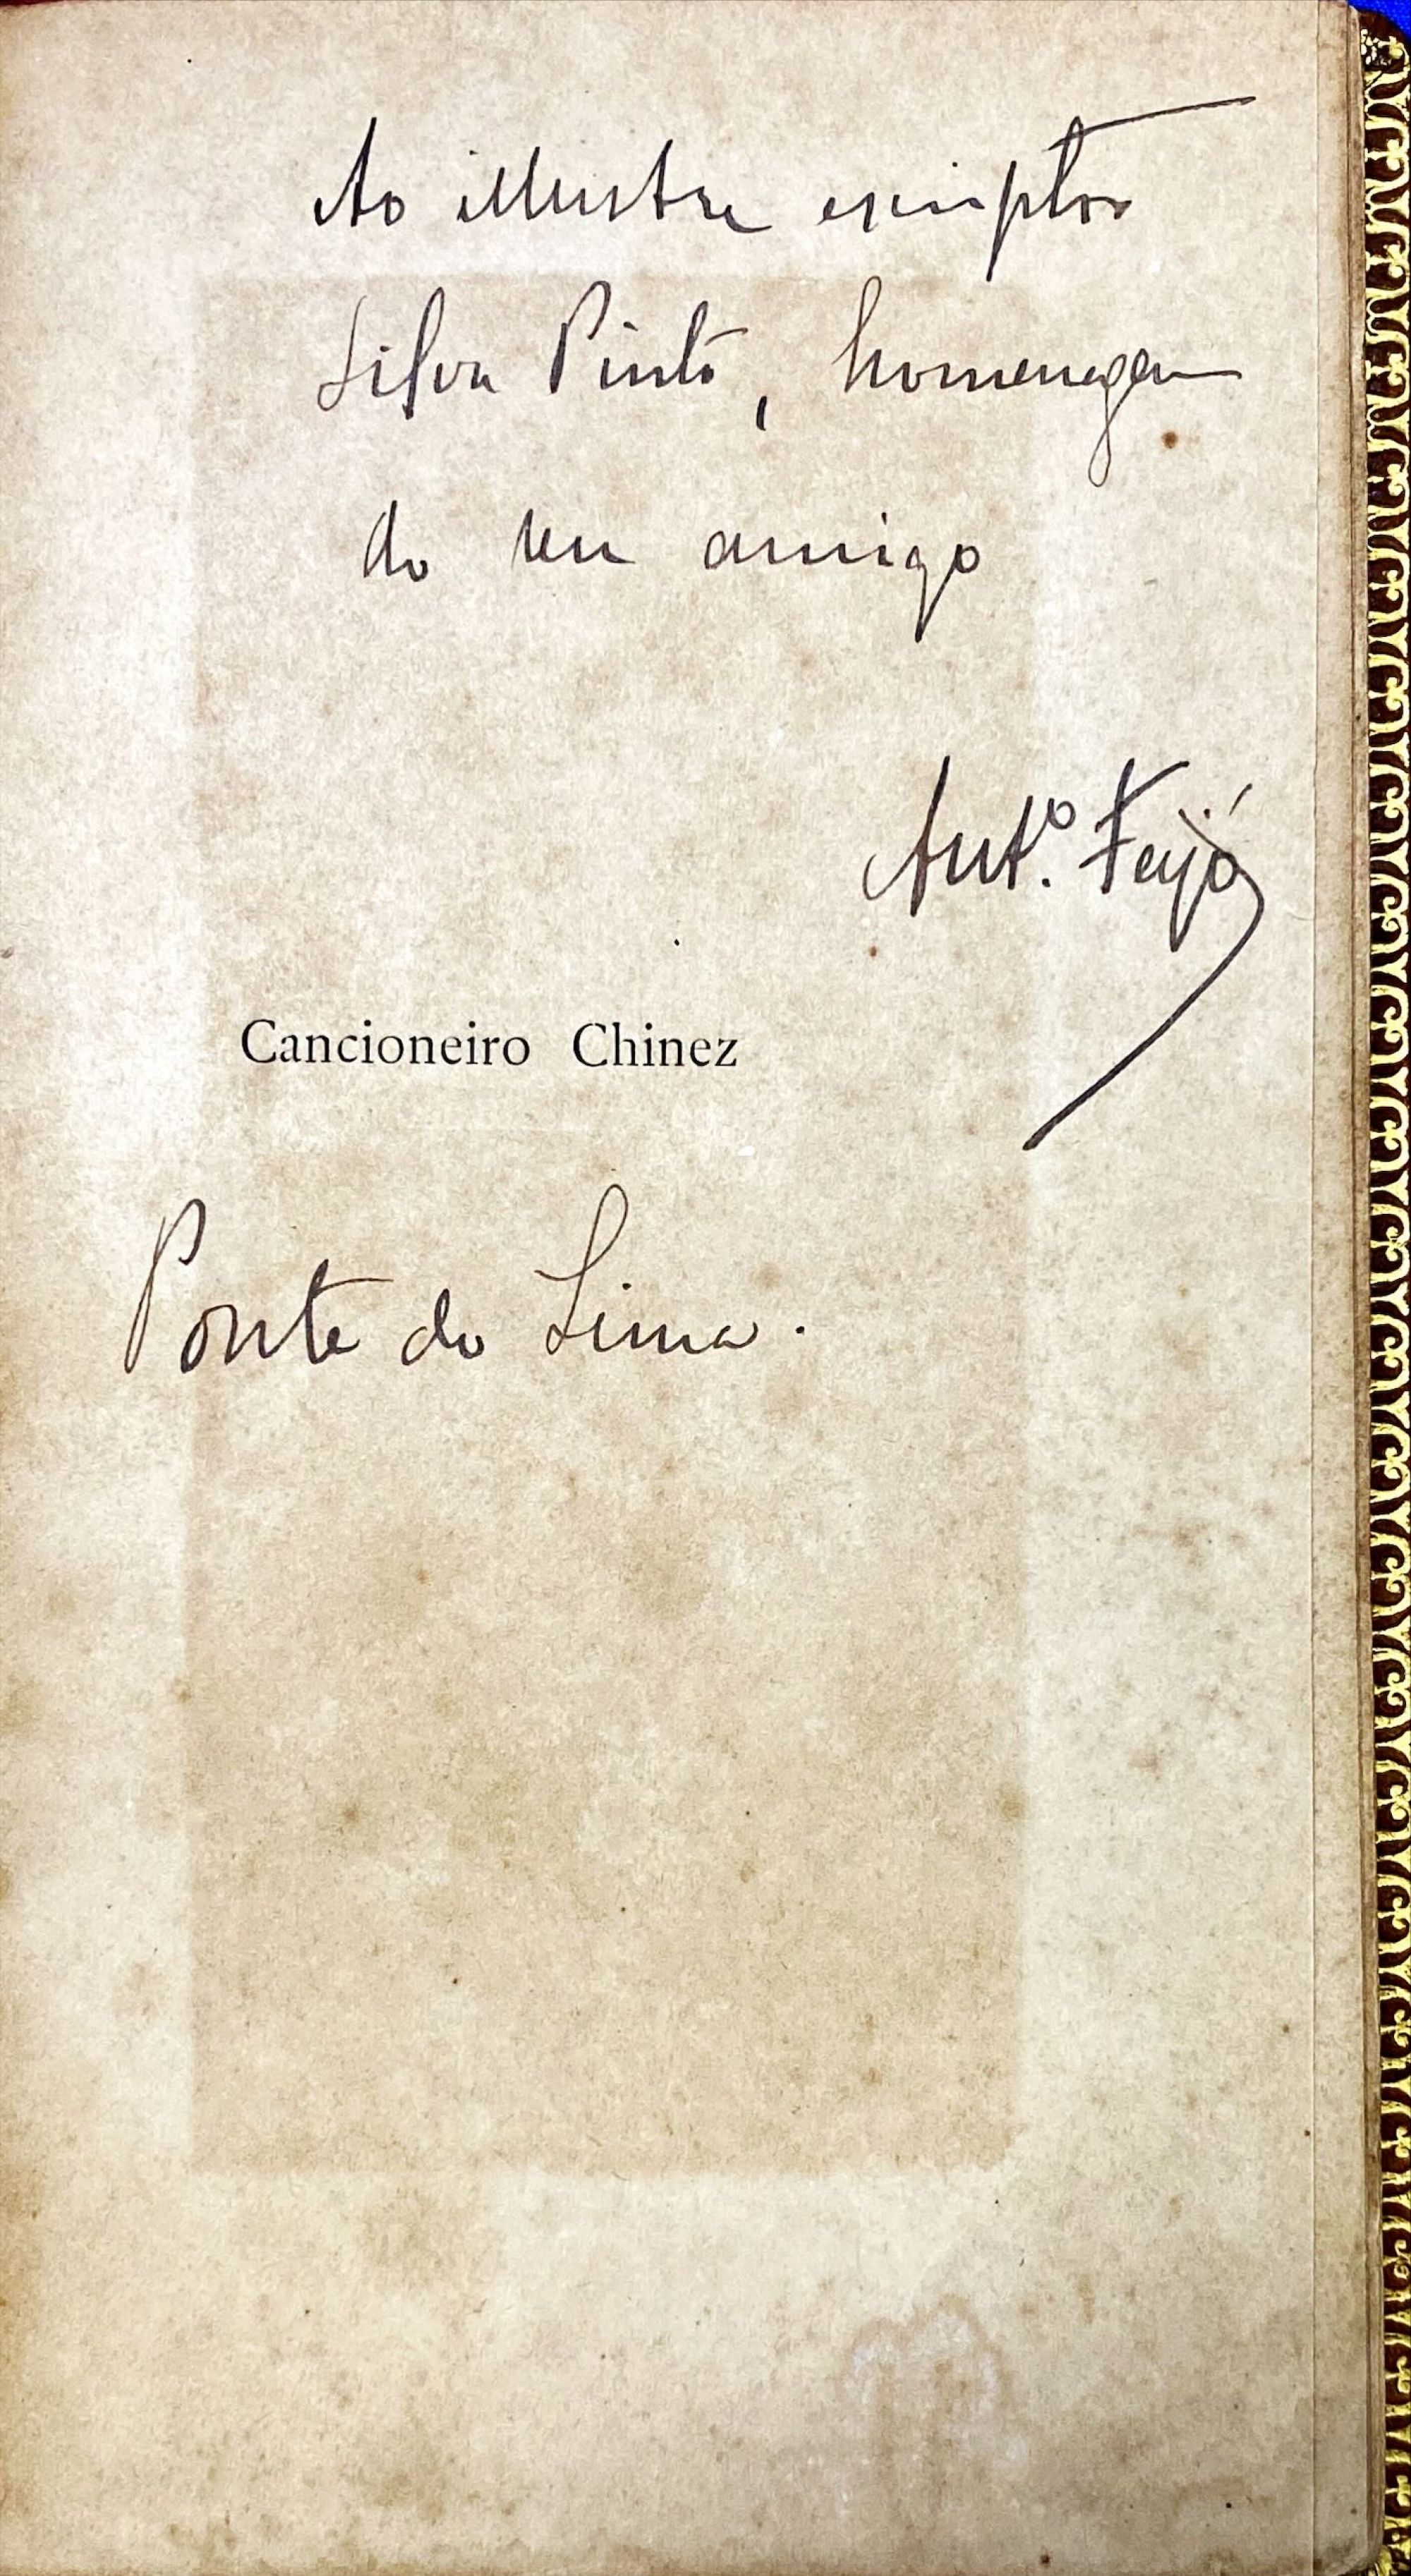 Ao illustre escriptor
Silva Pinto, homenagem
do seu amigo
Ant.º Feijó
Cancioneiro Chinez
Ponte do Lima.